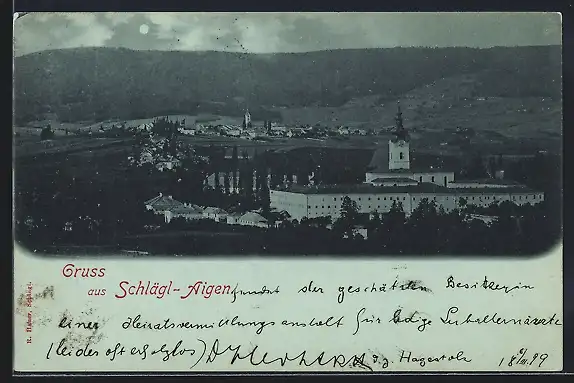 Gruss
aus Schlägl-Aigen, sendet der geschätzten Besitzerin
einer Heiratsvermittlungsanstalt für ledige
(leider oft erfolglos) Hagestolz
R. Huber, Schlägl.